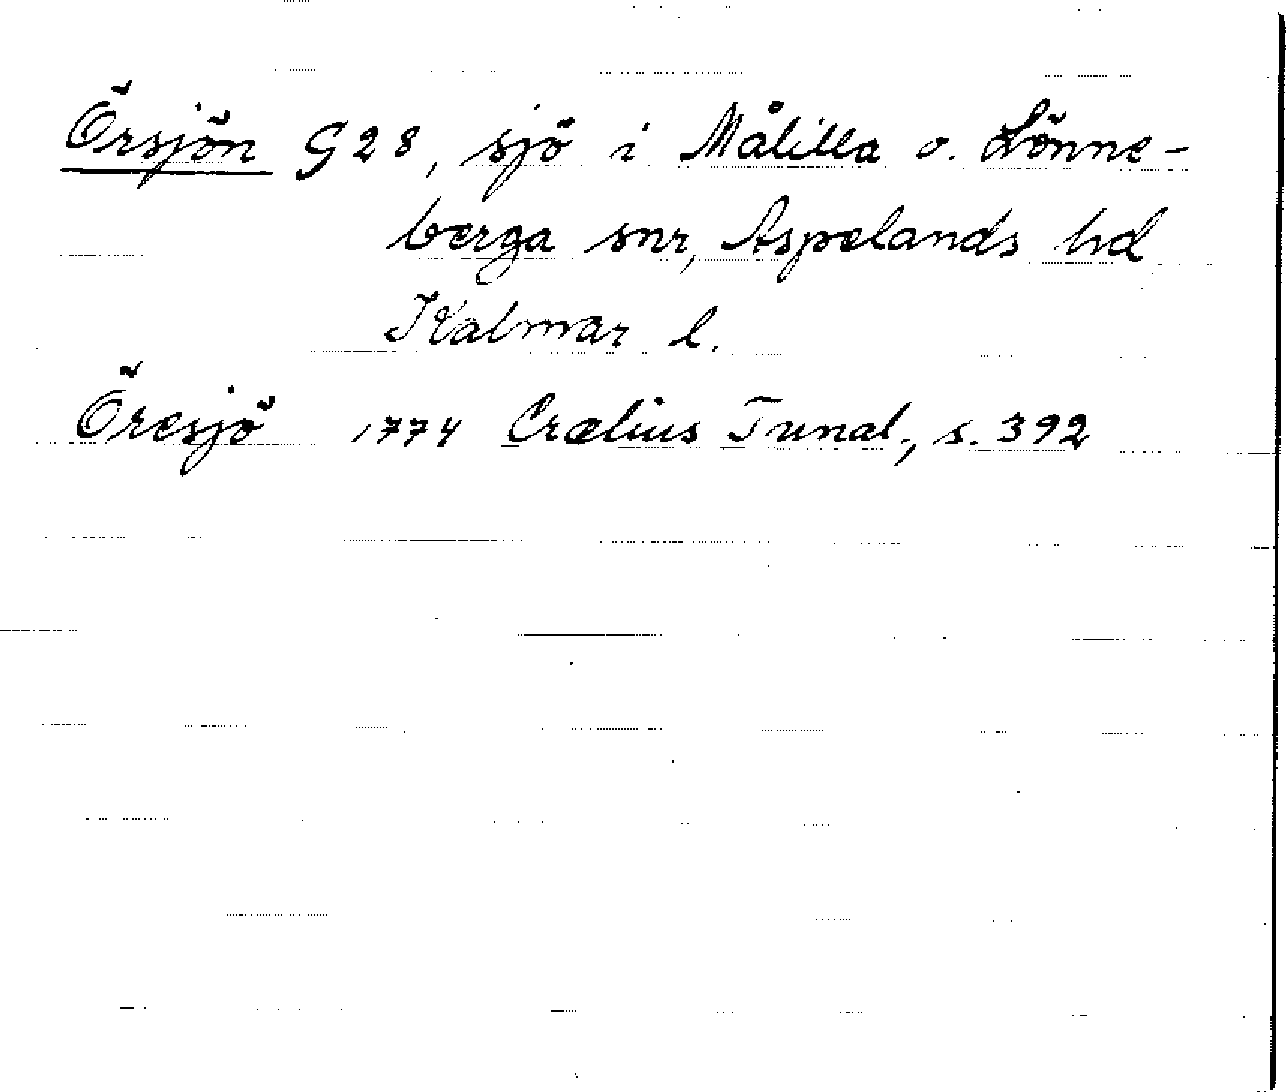 Örsjön G28, sjö i Målilla o. Lönne-
berga snr, Aspelands hd
Kalmar l.
Öresjö 1774 Crælius Tunal., s. 392